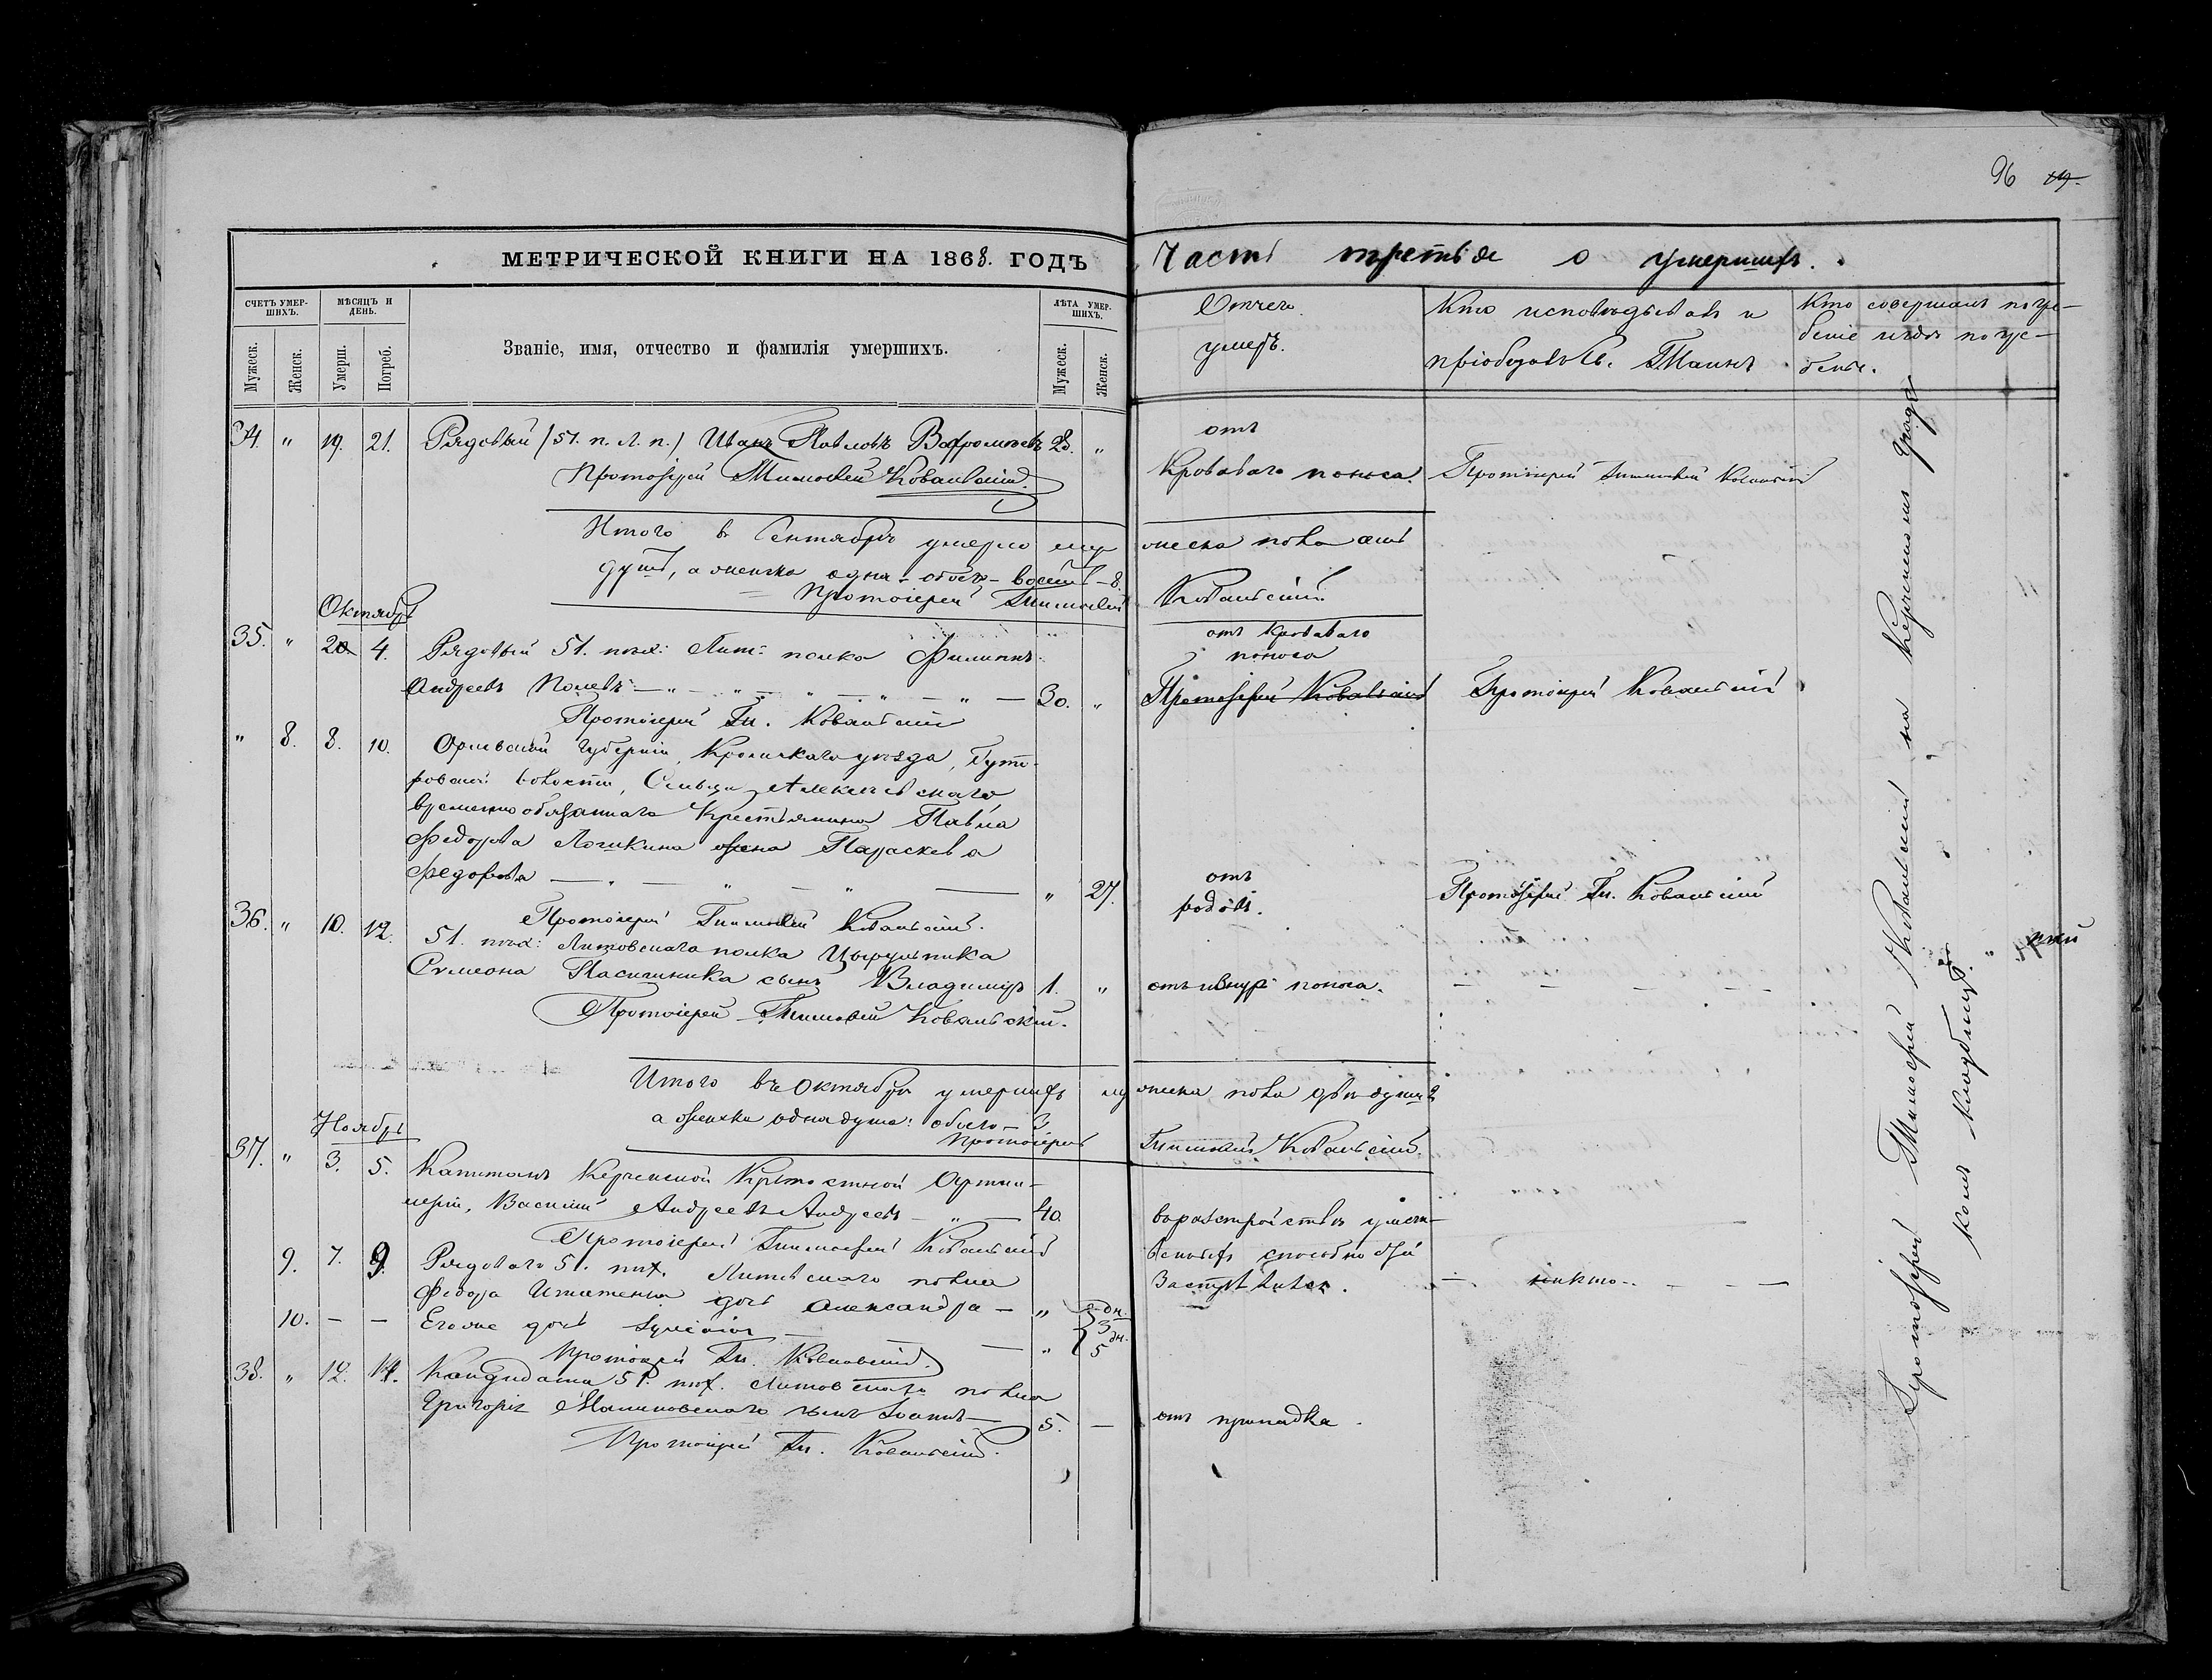 96 19.
МЕТРИЧЕСКОЙ КНИГИ НА 1868. ГОДЪ
Часть третья о умершихъ.
СЧЕТЪ УМЕР-
ШИХЪ.
МѢСЯЦЪ И
ДЕНЬ.
ЛѢТА УМЕР-
ШИХЪ.
Мужеск.
Женск.
Умерш.
Погреб.
Званіе, имя, отчество и фамилія умершихъ.
Мужеск.
Женск.
Отчего
умеръ.
Кто исповѣдывалъ и
пріобщалъ Св. Таинъ
Кто совершалъ погре-
беніе и гдѣ погре-
бены.
34. " 19. 21. Рядовый (51. п. Л. п.) Иванъ Павловъ 28. "
отъ
кроваваго поноса.
Протоіерей Тимоѳей Ковальскій
Протоіерей Тимоѳей Ковальскій.
Итого въ Сентябрѣ умерло мужеска пола семь
душъ, а женска одна - обоего - восемь - 8.
Протоіерей Тимоѳей Ковальскій
Октябрь
35. " 20. 4. Рядовый 51. пѣх: Лит: полка Филиппъ
Андреевъ - " - " - " - " - " - 30. "
отъ кроваваго
поноса
Протоіерей Ковальскій
Протоіерей Ковальскій
Протоіерей Тим. Ковальскій
" 8. 8. 10. Орловской Губерніи, Кромскаго уѣзда,
волости, Сельца
временно обязаннаго Крестьянина Павла
Федорова жена Параскева
Федорова - " - " - " 27.
отъ
родовъ.
Протоіерей Тим. Ковальскій
Протоіерей Тимоѳей Ковальскій.
36. " 10. 12. 51. пѣх: Литовскаго полка Цырульника
Симеона Пасишника сынъ Владимиръ 1. "
отъ поноса.
Протоіерей Тимоѳей Ковальскій.
Итого въ Октябрѣ умершихъ мужеска пола двѣ души
а женска одна душа: обоего - 3
Протоіерей Тимоѳей Ковальскій.
Ноябрь
37. " 3. 5. Капитанъ Керченской Крѣпостной Артил-
леріи, Василій Андреевъ Андреевъ - " - 40.
въ разстройствѣ умст-
венныхъ способностей
Застрѣлился.
Протоіерей Тимоѳей Ковальскій
9. 7. 9. Рядоваго 51. пѣх. Литовскаго полка
Федора дочь Александра - " 3 дн.
- никто - - -
10. - - Его же дочь - " 5 дн.
Протоіерей Тим. Ковальскій.
38. " 12. 14. Кандидата 51. пѣх. Литовскаго полка
Григорія Малиновскаго сынъ Іоаннъ - 5. -
отъ припадка.
Протоіерей Тим. Ковальскій.
Протоіерей Тимоѳей Ковальскій на Керченскомъ Град-
скомъ кладбищѣ.